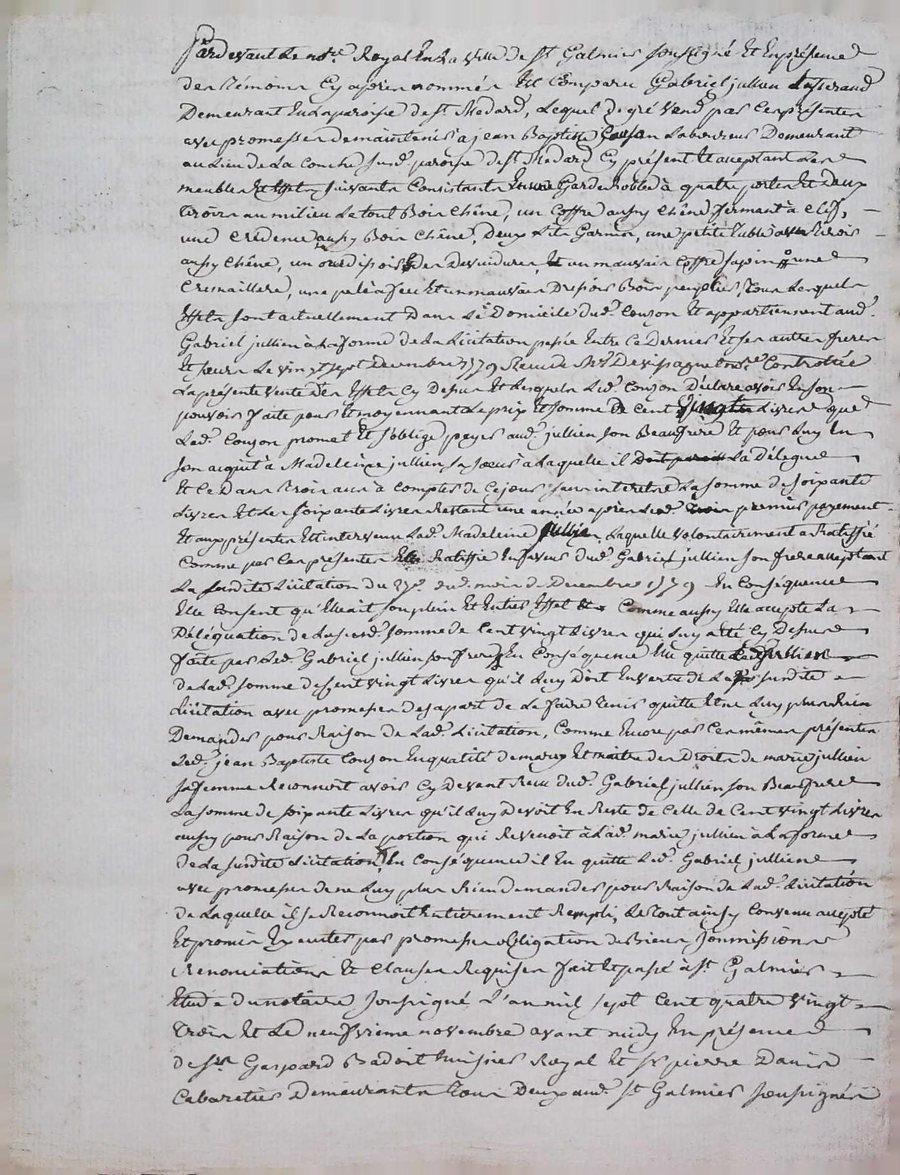 Pardevant Le not.re Royal En La ville de St Galmier soussigné Et En présence
des témoins Cy après nommés Est Comparu Gabriel jullien
Demeurant En La paroisse de st Medard, Lequel de gré vend par Ces présentes
avec promesse de maintenir à jean Baptiste Couzon Laboureur Demeurant
au Lieu de La Conche susd.e paroisse de st Medard Cy présent Et acceptant Les
meubles Et Effets suivants Consistants En une Garderobbe à quatre portes Et deux
tiroirs au milieu Le tout Bois Chêne, un Coffre aussy Chêne fermant à Clef,
une Credence aussy Bois Chêne, Deux Lits Garnis, une petite table avec tirois
aussy Chêne, un ourdissois Des Devidures, Et un mauvais Coffre sapin une
Cremaillere, une pele à feu Et un mauvais Dressois Bois peuplier, tous Lesquels
Effets sont actuellement Dans Le Domicile dud. Couzon Et appartiennent aud.
Gabriel jullien à La forme de La Licitation passée Entre Ce Dernier Et ses autres freres
Et soeurs Le vingt sept decembre 1779 Recue Me not.re Controllée
La présente vente des Effets Cy Dessus Et Lesquels Led. Couzon Déclare avois En son
pouvois faite pour Et moyennant Le prix Et somme de Cent vingt Livres que
Led. Couzon promet Et s'oblige payer aud. jullien son Beaufrere Et pour Luy En
son acquit à Madeleine jullien sa soeur à Laquelle il La Délegue
Et Ce Dans trois ans à Compter de Ce jour sans interet La somme de soixante
Livres Et Les soixante Livres Restant une année après Led. premier payement
Et aux présentes Est intervenu Lad. Madeleine jullien Laquelle volontairement a Ratiffié
Comme par Ces présentes Elle Ratiffie En faveur dud. Gabriel jullien son frere acceptant
La susdite Licitation du 27.e dud. mois de Decembre 1779 En Conséquence
Elle Consent qu'Elle ait son plein Et Entier Effet Et Comme aussy Elle accepte La
Déléguation de La susd. somme de Cent vingt Livres qui Luy a été Cy Dessus
faite par Led. Gabriel jullien son frere En Conséquence Elle quitte Led. jullien
de Lad. somme de Cent vingt Livres qu'il Luy Doit En vertu de La susdite
Licitation avec promesse de sa part de Le faire tenir quitte Et ne Luy plus Rien
Demander pour Raison de Lad. Licitation, Comme Encore par Ces mêmes présentes
Led. jean Baptiste Couzon En qualité de mary Et maitre des Droits de marie jullien
sa femme Reconnoit avois Cy Devant Reçu dud. Gabriel jullien son Beaufrere
La somme de soixante Livres qu'il Luy Devoit En Reste de Celle de Cent vingt Livres
aussy pour Raison de La portion qui Revenoit à Lad. marie jullien à La forme
de La susdite Licitation, En Conséquence il En quitte Led. Gabriel jullien
avec promesse de ne Luy plus Rien demander pour Raison de Lad. Licitation
de Laquelle il se Reconnoit Entierement Rempli, Le tout ainsy Convenu accepté
Et promis Executer par promesse obligation de Biens soumissions
Renonciations Et Clauses Requises fait Et passé à st Galmier
Etude du notaire soussigné L'an mil sept Cent quatre vingt
trois Et Le neufvieme novembre avant midy En présence
de sr Gaspard Badoit huissier Royal Et sr pierre David
Cabaretier Demeurants tous Deux aud. st Galmier soussignés